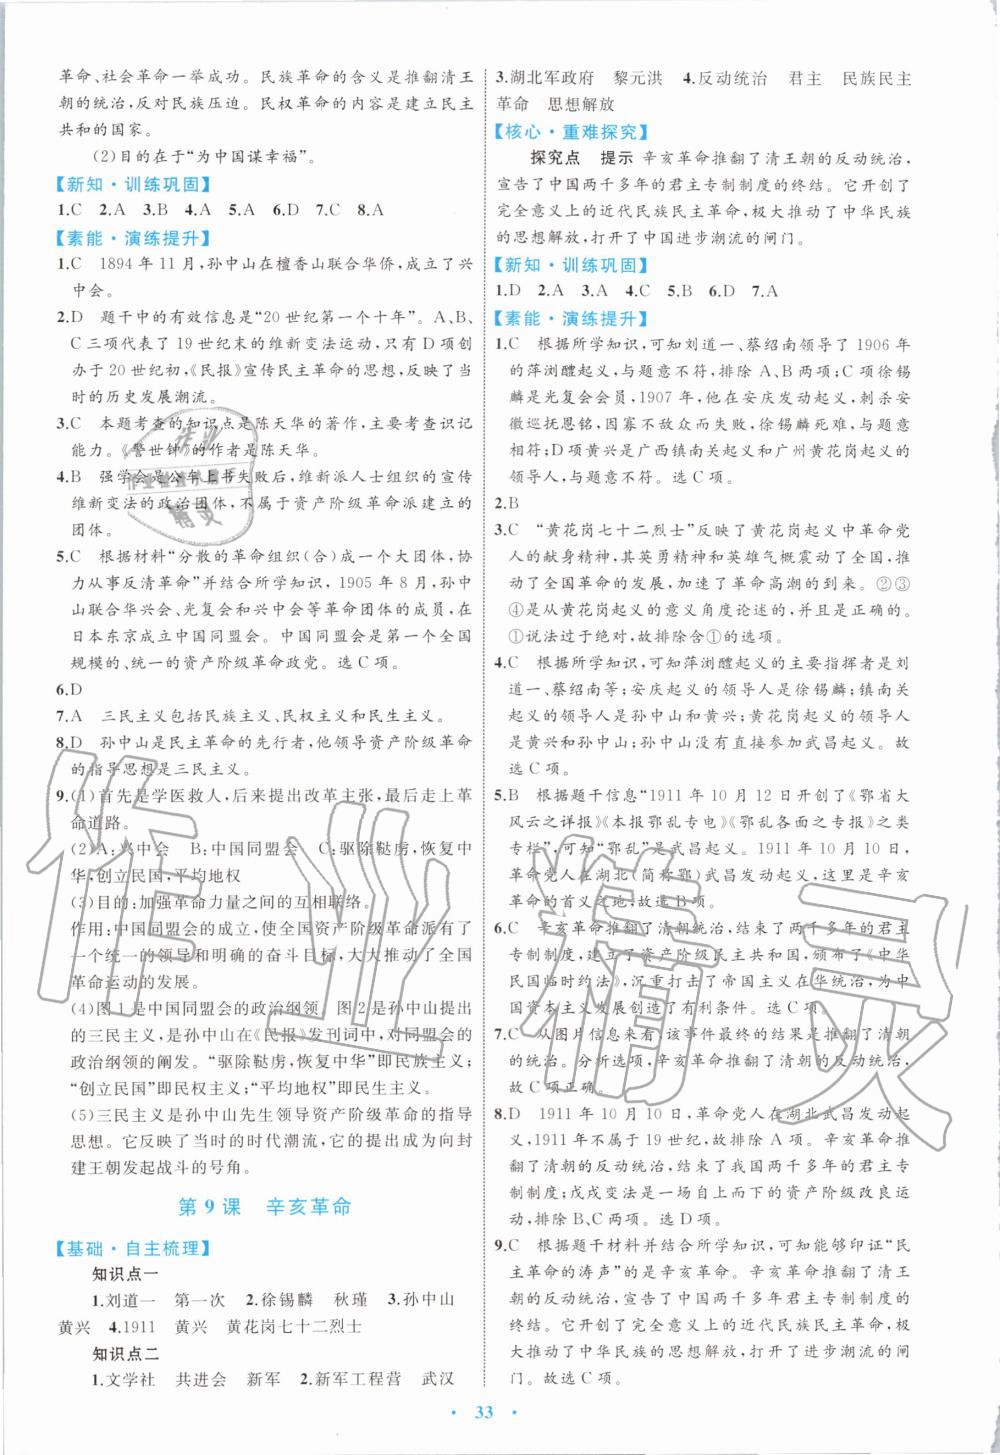 革命、社会革命一举成功。民族革命的含义是推翻清王
朝的统治,反对民族压迫。民权革命的内容是建立民主
共和的国家。
(2)目的在于“为中国谋幸福”。
【新知·训练巩固】
1.C 2.A 3.B 4.A 5.A 6.D 7.C 8.A
【素能·演练提升】
1.C 1894年11月,孙中山在檀香山联合华侨,成立了兴
中会。
2.D 题干中的有效信息是“20世纪第一个十年”。A、B、
C三项代表了19世纪末的维新变法运动,只有D项创
办于20世纪初,《民报》宣传民主革命的思想,反映了当
时的历史发展潮流。
3.C 本题考查的知识点是陈天华的著作,主要考查识记
能力。《警世钟》的作者是陈天华。
4.B 强学会是公车上书失败后,维新派人士组织的宣传
维新变法的政治团体,不属于资产阶级革命派建立的
团体。
5.C 根据材料“分散的革命组织(合)成一个大团体,协
力从事反清革命”并结合所学知识,1905年8月,孙中
山联合华兴会、光复会和兴中会等革命团体的成员,在
日本东京成立中国同盟会。中国同盟会是第一个全国
规模的、统一的资产阶级革命政党。选C项。
6.D
7.A 三民主义包括民族主义、民权主义和民生主义。
8.D 孙中山是民主革命的先行者,他领导资产阶级革命
的指导思想是三民主义。
9.(1)首先是学医救人,后来提出改革主张,最后走上革
命道路。
(2)A:兴中会 B:中国同盟会 C:驱除鞑虏,恢复中
华,创立民国,平均地权
(3)目的:加强革命力量之间的互相联络。
作用:中国同盟会的成立,使全国资产阶级革命派有了
一个统一的领导和明确的奋斗目标,大大推动了全国
革命运动的发展。
(4)图1是中国同盟会的政治纲领 图2是孙中山提出
的三民主义,是孙中山在《民报》发刊词中,对同盟会的
政治纲领的阐发。“驱除鞑虏,恢复中华”即民族主义;
“创立民国”即民权主义;“平均地权”即民生主义。
(5)三民主义是孙中山先生领导资产阶级革命的指导
思想。它反映了当时的时代潮流,它的提出成为向封
建王朝发起战斗的号角。
第9课 辛亥革命
【基础·自主梳理】
知识点一
1.刘道一 第一次 2.徐锡麟 秋瑾 3.孙中山
黄兴 4.1911 黄兴 黄花岗七十二烈士
知识点二
1.文学社 共进会 新军 2.新军工程营 武汉
3.湖北军政府 黎元洪 4.反动统治 君主 民族民主
革命 思想解放
【核心·重难探究】
探究点 提示 辛亥革命推翻了清王朝的反动统治,
宣告了中国两千多年的君主专制制度的终结。它开创了
完全意义上的近代民族民主革命,极大推动了中华民族
的思想解放,打开了中国进步潮流的闸门。
【新知·训练巩固】
1.D 2.A 3.A 4.C 5.B 6.D 7.A
【素能·演练提升】
1.C 根据所学知识,可知刘道一、蔡绍南领导了1906年
的萍浏醴起义,与题意不符,排除A、B两项;C项徐锡
麟是光复会会员,1907年,他在安庆发动起义,刺杀安
徽巡抚恩铭,因寡不敌众而失败,徐锡麟遇难,与题意
相符;D项黄兴是广西镇南关起义和广州黄花岗起义的
领导人,与题意不符,排除。故选C项。
2.B
3.C “黄花岗七十二烈士”反映了黄花岗起义中革命党
人的献身精神,其英勇精神和英雄气概震动了全国,推
动了全国革命的发展,加速了革命高潮的到来。②③
④是从黄花岗起义的意义角度论述的,并且是正确的。
①说法过于绝对,故排除含①的选项。
4.C 根据所学知识,可知萍浏醴起义的主要指挥者是刘
道一、蔡绍南等;安庆起义的领导人是徐锡麟;镇南关
起义的领导人是孙中山和黄兴;黄花岗起义的领导人
是黄兴和赵声;孙中山没有直接参加武昌起义。故
选C项。
5.B 根据题干信息“1911年10月12日开创了《鄂省大
风云之详报》《本报鄂乱专电》《鄂乱各面之专报》之类
专栏”,可知“鄂乱”是武昌起义。1911年10月10日,
革命党人在湖北(简称鄂)武昌发动起义,这里是辛亥
革命的首义之地,故选B项。
6.C 辛亥革命推翻了清朝统治,结束了两千多年的君主
专制制度,建立了资产阶级共和国,颁布了《中华
民国临时约法》,沉重打击了帝国主义在华统治,为中
国资本主义发展创造了有利条件。选C项。
7.C 从图片信息来看,该事件最终的结果是推翻了清朝
的统治。分析选项,辛亥革命推翻了清朝的反动统治,
故C项正确。
8.D 1911年10月10日,革命党人在湖北武昌发动起
义,1911年不属于19世纪,故排除A项。辛亥革命推
翻了清朝的反动统治,结束了中国两千多年的君主专
制制度;戊戌变法是一场自上而下的资产阶级改良运
动,故排除B、C两项。选D项。
9.C 根据题干材料并结合所学知识,可知能够印证“民
主革命的涛声”的是辛亥革命。辛亥革命推翻了清王
朝的反动统治,宣告了中国两千多年君主专制制度的
终结。它开创了完全意义上的近代民族民主革命,极
大推动了中华民族的思想解放,打开了进步潮流的闸
门。故选C项。
· 33 ·
作业精灵